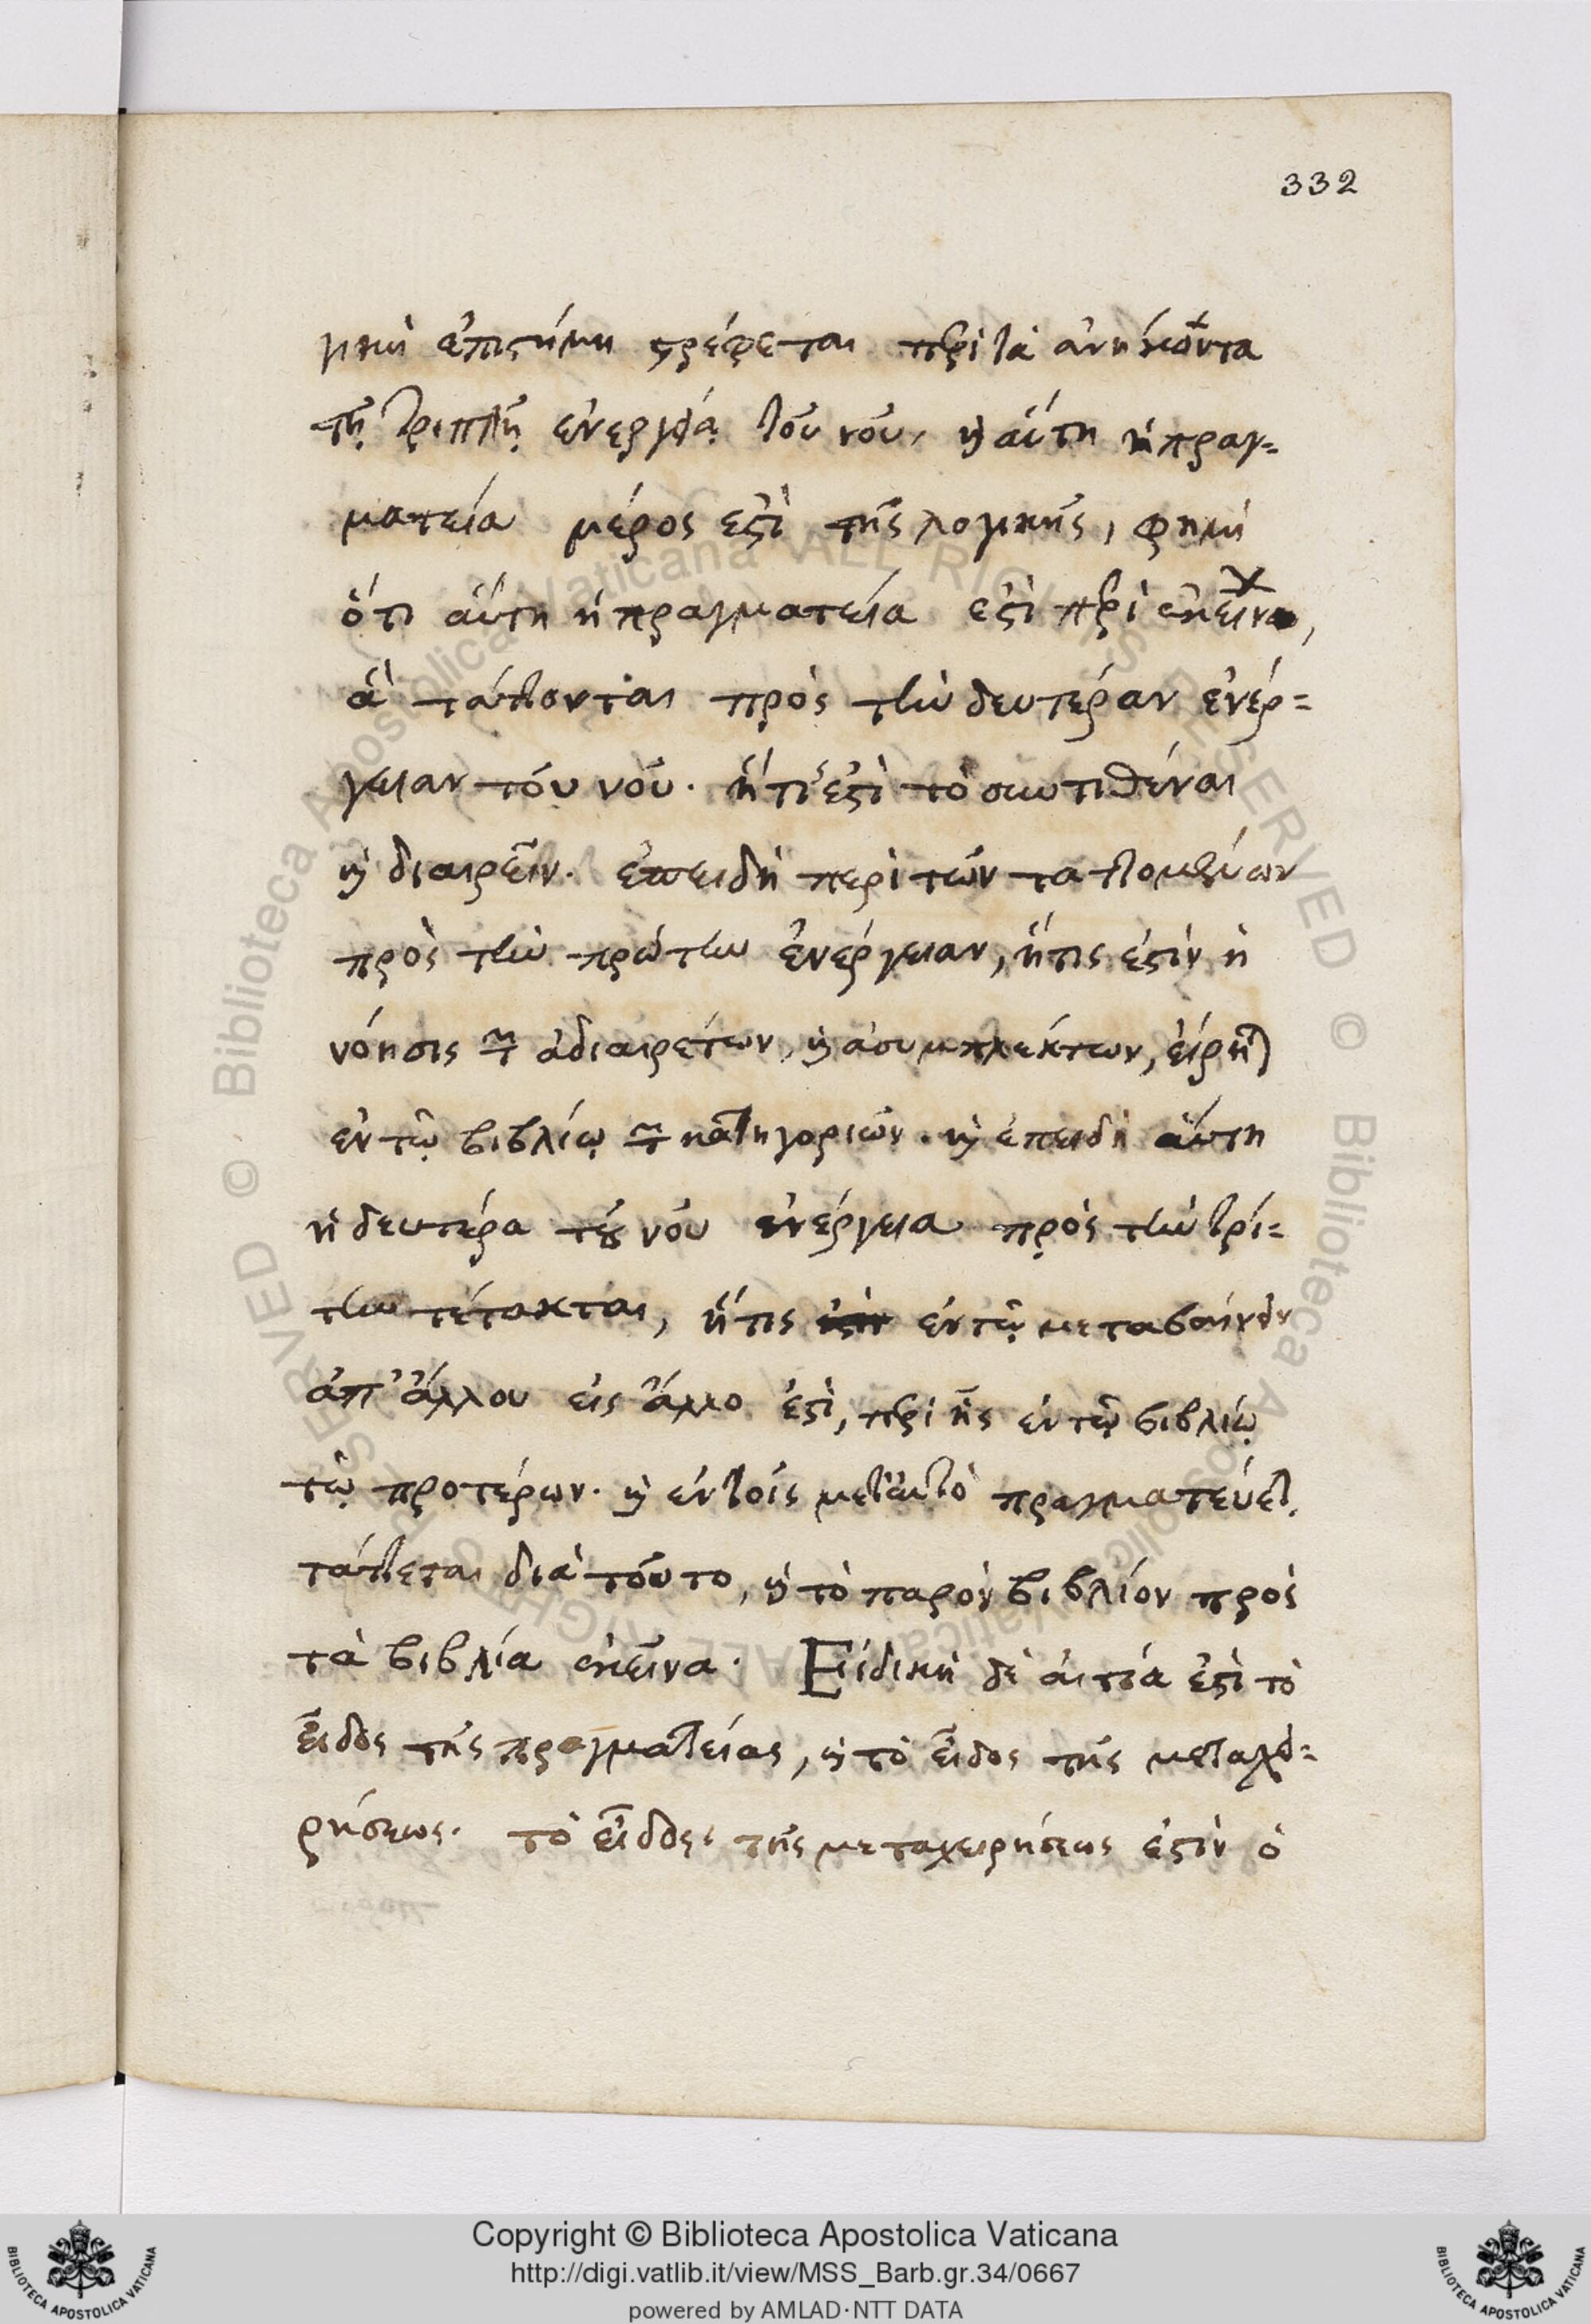 332
γικὴ ἐπιστήμη στρέφεται περὶ τὰ ἀνήκοντα
τῇ τριπλῇ ἐνεργείᾳ τοῦ νοῦ, καὶ αὕτη ἡ πραγ=
ματεία μέρος ἐστὶ τῆς λογικῆς, φημὶ
ὅτι αὕτη ἡ πραγματεία ἐστὶ περὶ ἐκεῖνα,
ἃ τάττονται πρὸς τὴν δευτέραν ἐνέρ=
γειαν τοῦ νοῦ. ἥτις ἐστὶ τὸ συντιθέναι
καὶ διαιρεῖν. ἐπειδὴ περὶ τῶν ταττομένων
πρὸς τὴν πρώτην ἐνέργειαν, ἥτις ἐστὶν ἡ
νόησις τῶν ἀδιαιρέτων, καὶ ἀσυμπλέκτων, εἴρηται
ἐν τῷ βιβλίῳ τῶν κατηγοριῶν. καὶ ἐπειδὴ αὕτη
ἡ δευτέρα τοῦ νοῦ ἐνέργεια πρὸς τὴν τρί=
την τέτακται, ἥτις ἐν τῷ μεταβαίνειν
ἀπ' ἄλλου εἰς ἄλλο ἐστὶ, περὶ ἧς ἐν τῷ βιβλίῳ
τῷ προτέρων. καὶ ἐν τοῖς μετ' αὐτὸ πραγματεύετ.
τάττεται διὰ τοῦτο, καὶ τὸ παρὸν βιβλίον πρὸς
τὰ βιβλία ἐκεῖνα. Εἰδικὴ δὲ αἰτία ἐστὶ τὸ
εἶδος τῆς πραγματείας, καὶ τὸ εἶδος τῆς μεταχει=
ρήσεως. τὸ εἶδος τῆς μεταχειρήσεως ἐστὶν ὁ
Copyright © Biblioteca Apostolica Vaticana
http://digi.vatlib.it/view/MSS_Barb.gr.34/0667
powered by AMLAD·NTT DATA